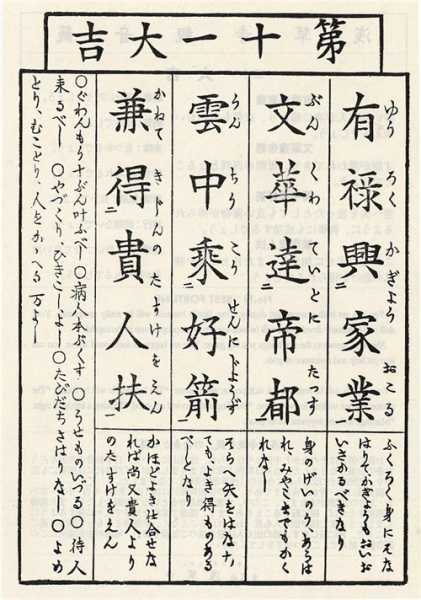 第十一大吉
有祿興家業
ゆうろくかぎようおこる
ふくろく身にそな
はりてかぎようもおいお
いさかるべきなり
文華達帝都
ぶんくわていとにたつす
身のげいのうあらは
れ、みやこまでもかく
れなし
雲中乗好箭
うんちうこうせんにじようず
そらへ矢をはなす、
てもよき得ものある
べしとなり
兼得貴人扶
かねてきじんのたすけをえん
かほどよき仕合せな
れば尚又貴人より
のたすけをえん
○ぐわんもう十ぶん叶ふべし○病人本ぷくす○うせものいづる○待人
来るべし○やづくり、ひきこしよし○たびだちさはりなし○よめ
とり、むことり、人をかゝへる万よし